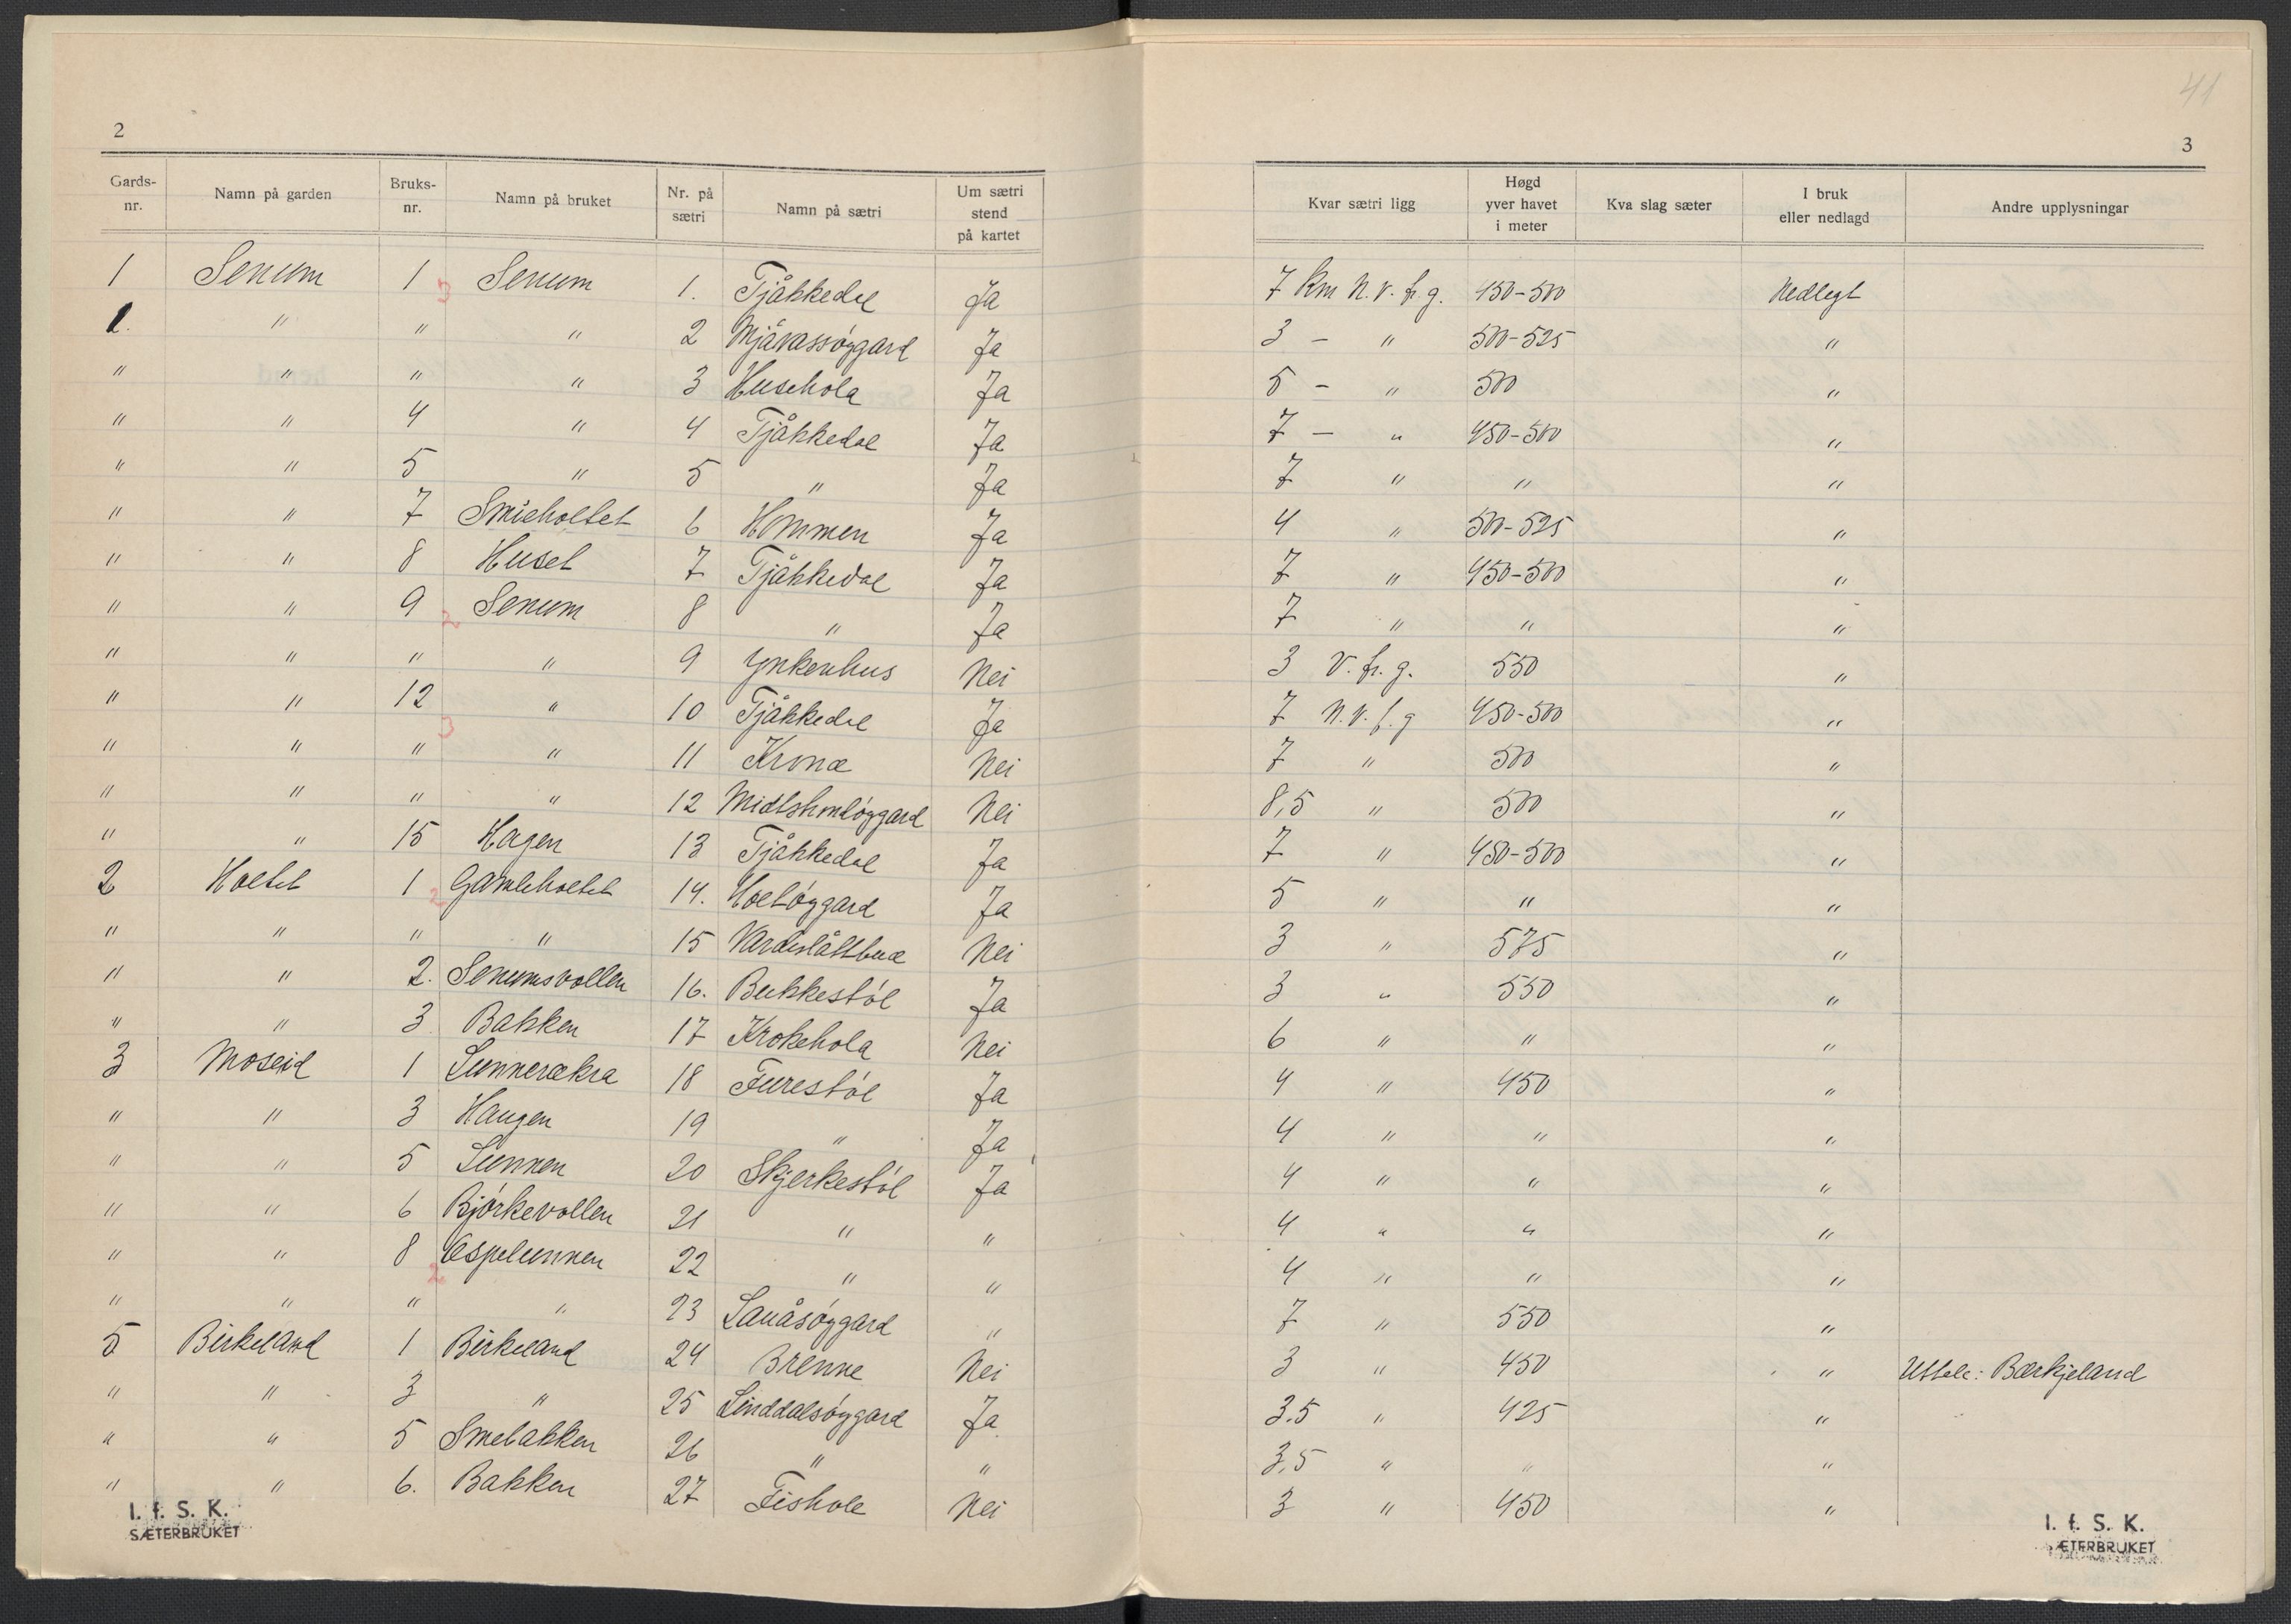 41
2
3
Gards-nr. | Namn på garden | Bruks-nr. | Namn på bruket | Nr. på sætri | Namn på sætri | Um sætri stend på kartet | Kvar sætri ligg | Høgd yver havet i meter | Kva slag sæter | I bruk eller nedlagd | Andre upplysningar
1 | Senum | 1 | 3 Senum | 1. | Tjåkkedal | Ja | 7 km N.v. fr. g. | 450-500 | | Nedlegt |
1. | " | " | " | 2 | Mjåvassøygard | Ja | 3 - " | 500-525 | | " |
" | " | " | " | 3 | Husehola | Ja | 5 - " | 500 | | " |
" | " | 4 | " | 4 | Tjåkkedal | Ja | 7 - " | 450-500 | | " |
" | " | 5 | " | 5 | " | Ja | 7 " | " | | " |
" | " | 7 | Smieholtet | 6 | Hommen | Ja | 4 " | 500-525 | | " |
" | " | 8 | Huset | 7 | Tjåkkedal | Ja | 7 " | 450-500 | | " |
" | " | 9 | 2 Senum | 8 | " | Ja | 7 " | " | | " |
" | " | " | " | 9 | Ynkenhus | Nei | 3 V. fr. g. | 550 | | " |
" | " | 12 | 3 " | 10 | Tjåkkedal | Ja | 7 N.V. f. g | 450-500 | | " |
" | " | " | " | 11 | Kronæ | Nei | 7 " | 500 | | " |
" | " | " | " | 12 | | Nei | 8,5 " | 500 | | " |
" | " | 15 | Hagen | 13 | Tjåkkedal | Ja | 7 " | 450-500 | | " |
2 | Holtet | 1 | 2 Gamleholtet | 14. | Holtøygard | Ja | 5 " | " | | " |
" | " | " | " | 15 | Vardeslåttbuæ | Nei | 3 " | 575 | | " |
" | " | 2. | Senumsvollen | 16. | Bukkestøl | Ja | 3 " | 550 | | " |
" | " | 3 | Bakken | 17 | Krokehola | Nei | 6 " | " | | " |
3 | Moseid | 1 | Lunnerækra | 18 | Furestøl | Ja | 4 " | 450 | | " |
" | " | 3 | Haugen | 19 | " | Ja | 4 " | " | | " |
" | " | 5 | Lunnen | 20 | Skjerkestøl | Ja | 4 " | " | | " |
" | " | 6 | Bjørkevollen | 21 | " | " | 4 " | " | | " |
" | " | 8 | 2 Ospelunnen | 22 | " | " | 4 " | " | | " |
" | " | " | " | 23 | Lauåsøygard | " | 7 " | 550 | | " |
5 | Birkeland | 1 | Birkeland | 24 | Brenne | Nei | 3 " | 450 | | " | Uttale: Bærkjeland
" | " | 3 | " | 25 | Linddalsøygard | Ja | 3.5 " | 425 | | " |
" | " | 5 | Smebakken | 26 | " | " | 3,5 " | " | | " |
" | " | 6. | Bakken | 27 | Fishole | Nei | 3 " | 450 | | " |
I. f. S. K.
SÆTERBRUKET
I. f. S. K.
ÆTERBRUKET